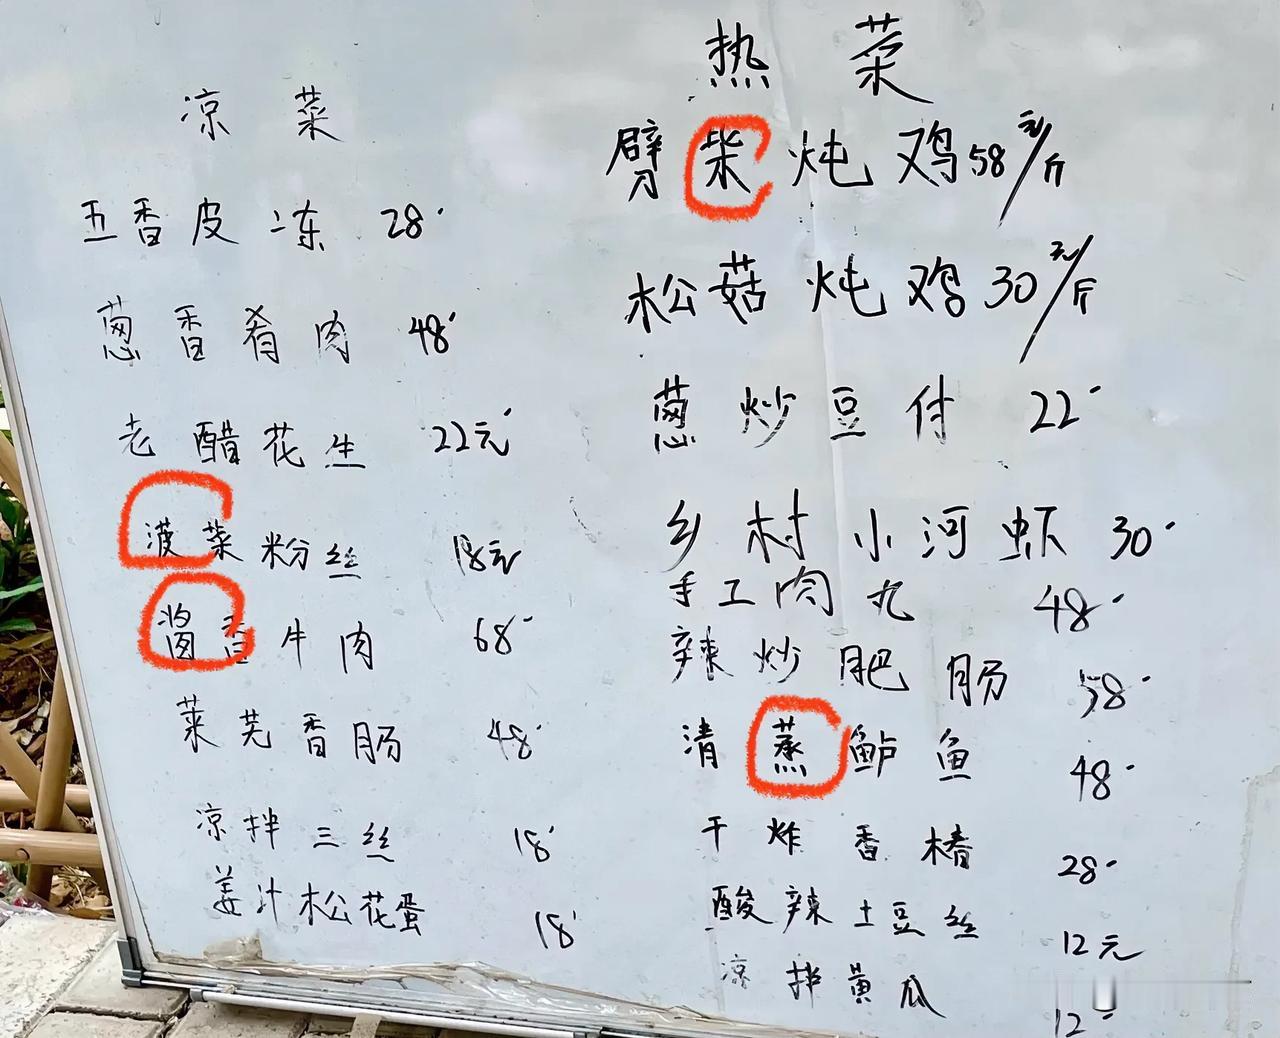 凉菜
五香皮冻 28
葱香肴肉 48
老醋花生 22元
菠菜粉丝 18元
酱香牛肉 68
莱芜香肠 48
凉拌三丝 18
姜汁松花蛋 18
热菜
劈柴炖鸡58元/斤
松菇炖鸡30元/斤
葱炒豆付 22
乡村小河虾 30
手工肉丸 48
辣炒肥肠 58
清蒸鲈鱼 48
干炸香椿 28
酸辣土豆丝 12元
凉拌黄瓜 12